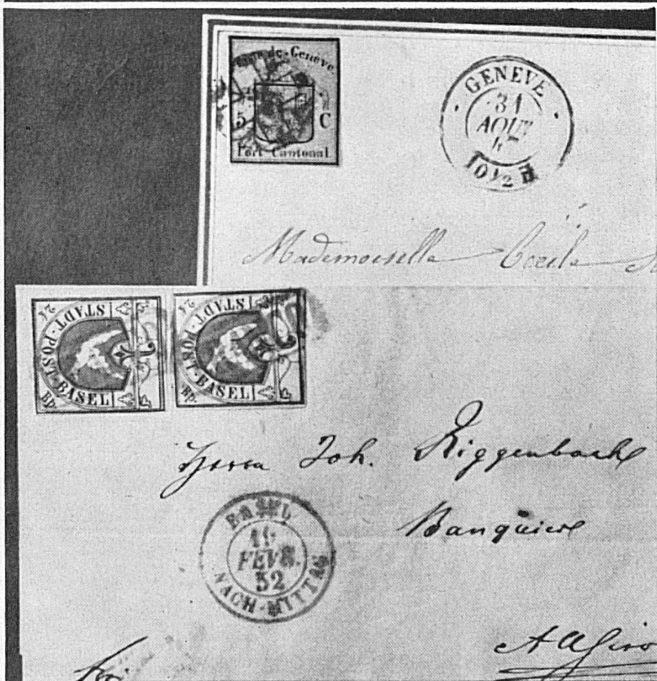 Poste de Genève
5 C
Port Cantonal
GENÈVE
31
AOUT
10½
Mademoiselle Cécile
STADT-POST-BASEL
2½ Rp.
STADT-POST-BASEL
2½ Rp.
Herrn Joh. Riggenbach
Banquier
BASEL
19
FEVR.
52
NACH-MITTAG